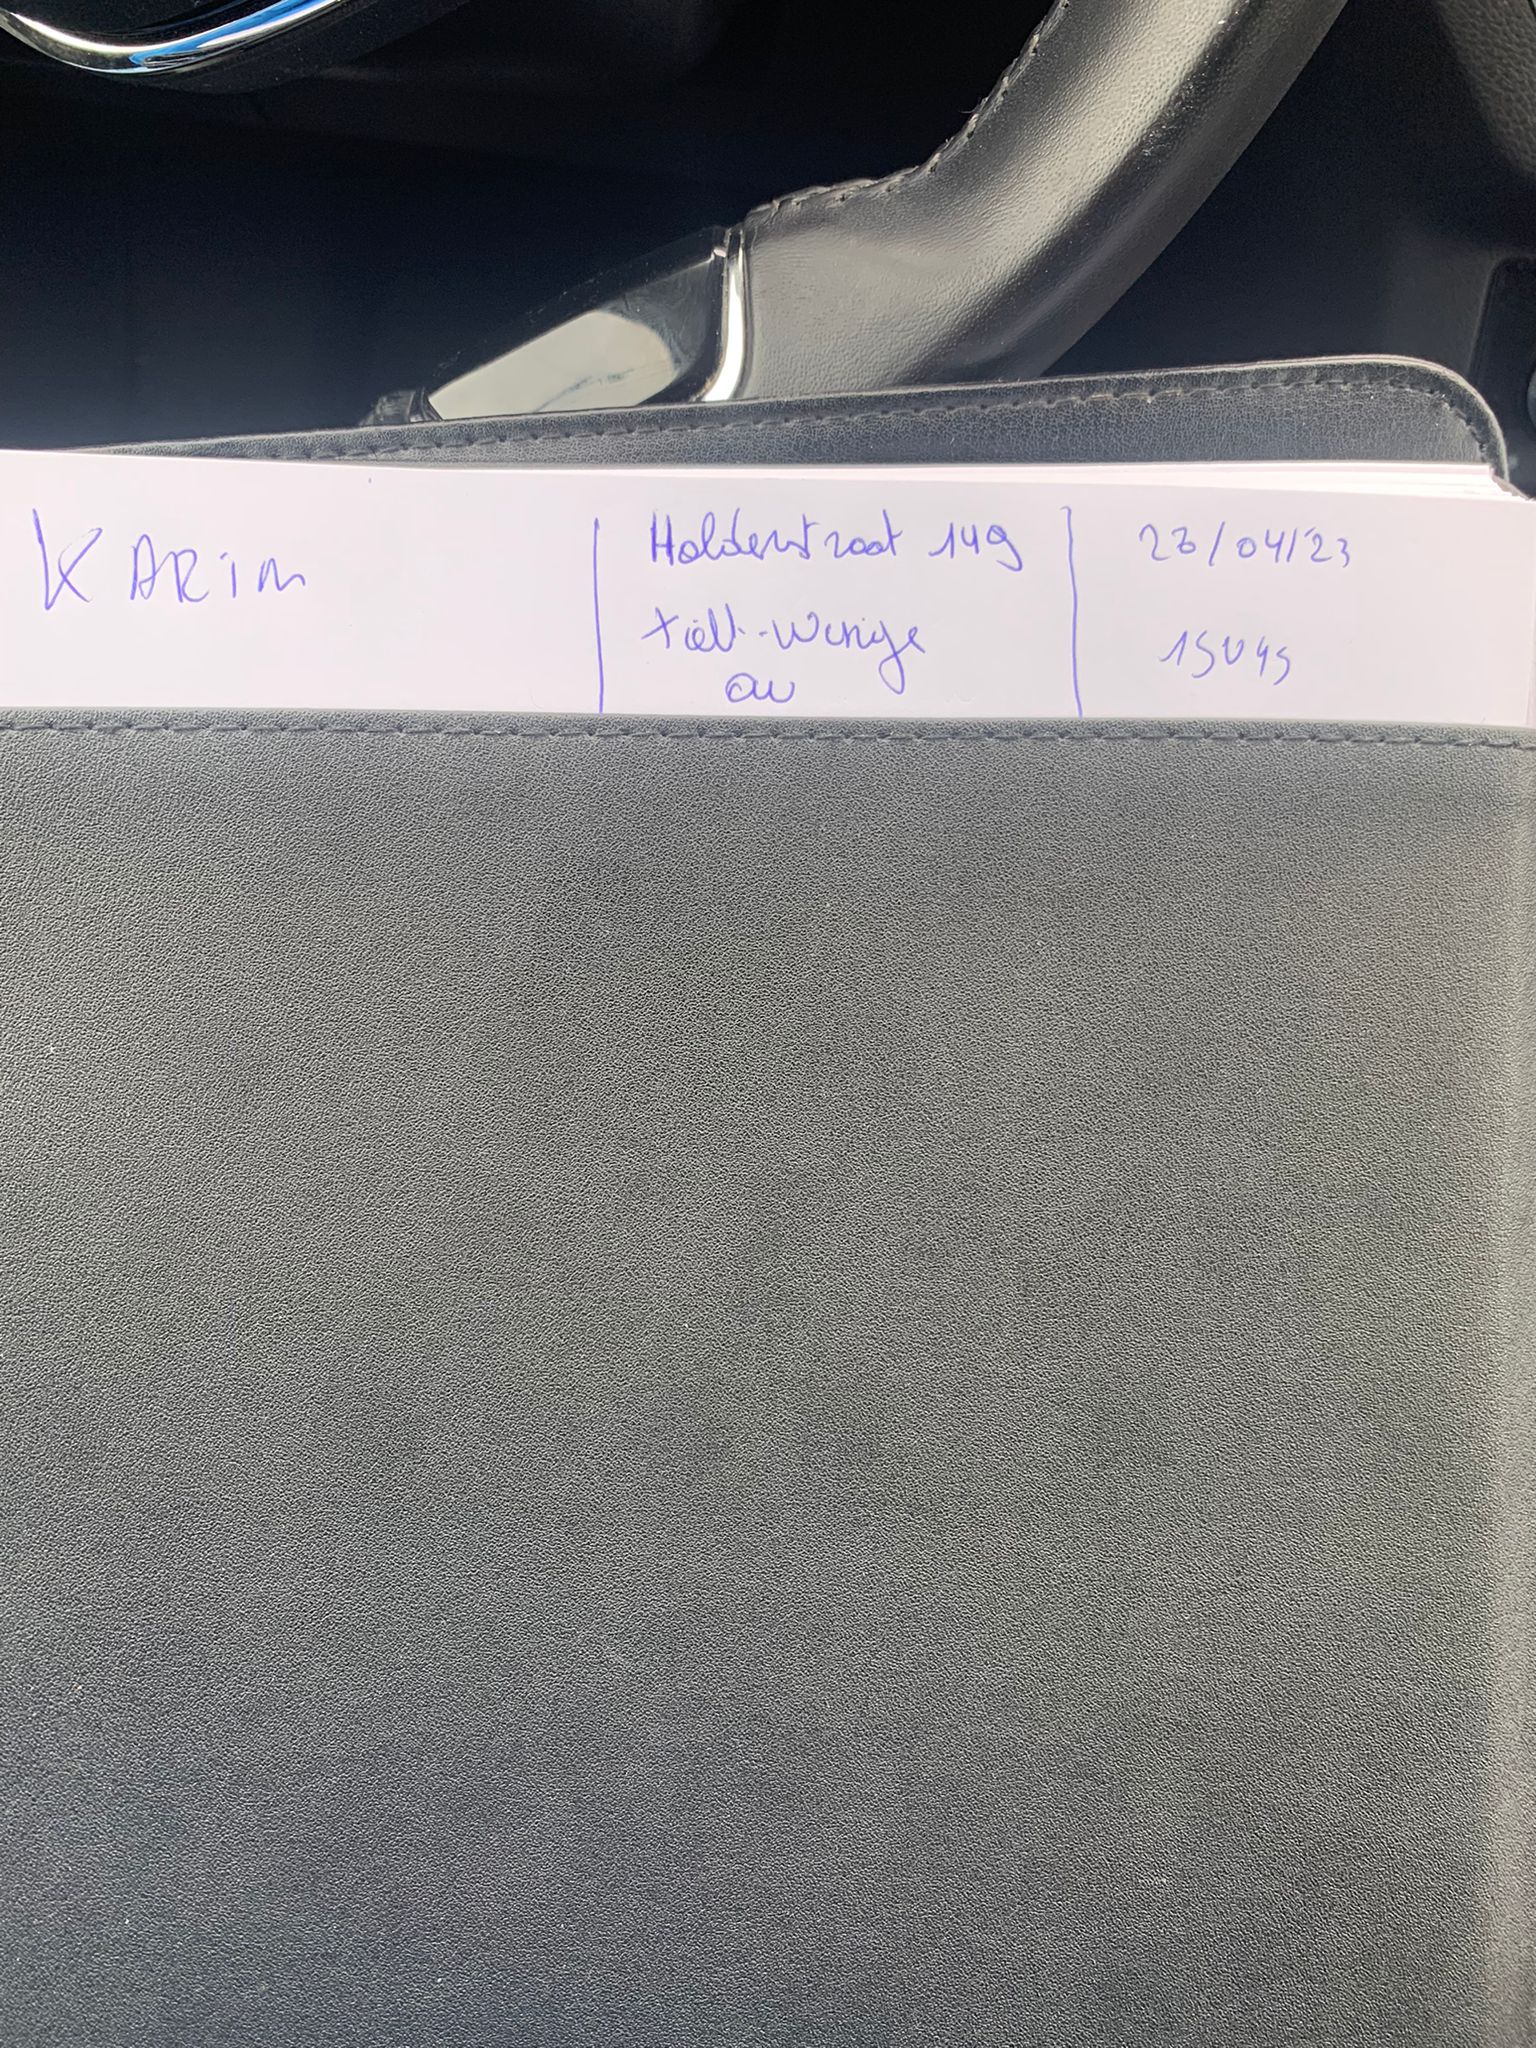 KARIM
Holderstraat 149
Tielt-Winge
OV
23/04/23
15u45